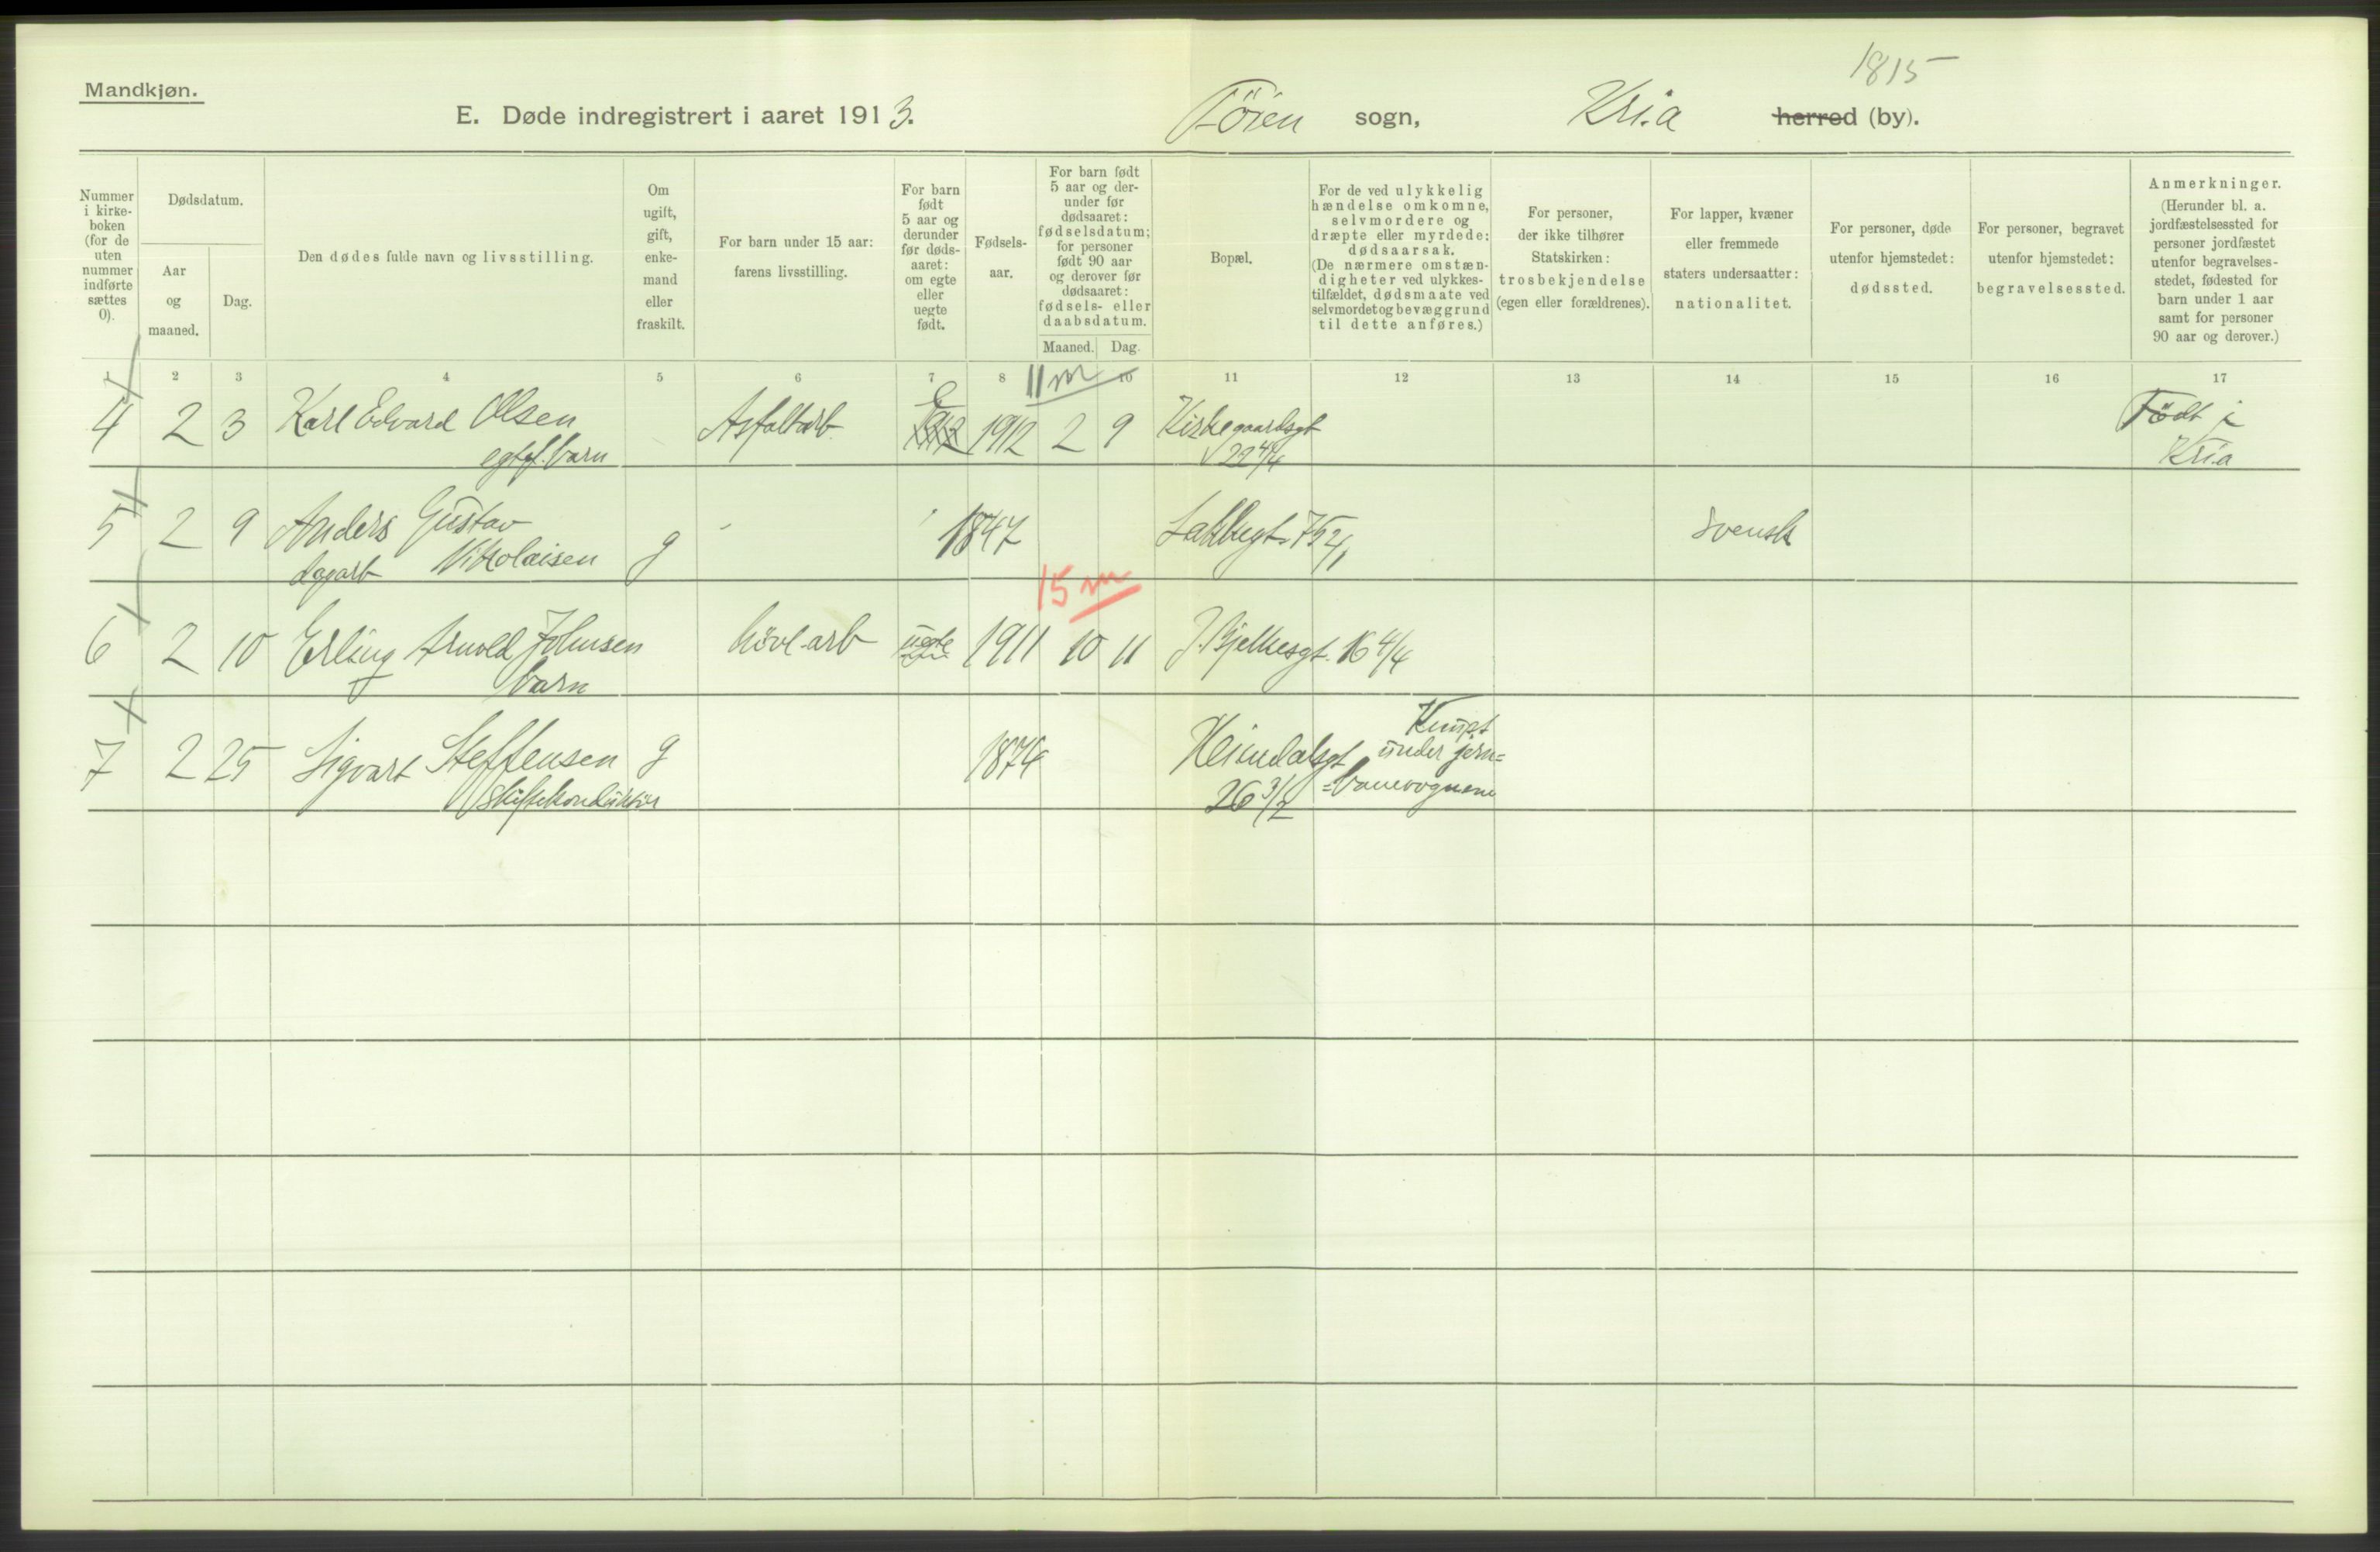 1815
Mandkjøn.
E. Døde indregistrert i aaret 1913. Töien sogn, Kri.a herred (by).
Nummer i kirke-boken (for de uten nummer indførte sættes 0).
Dødsdatum.
Aar og maaned.
Dag.
Den dødes fulde navn og livsstilling.
Om ugift, gift, enke-mand eller fraskilt.
For barn under 15 aar: farens livsstilling.
For barn født 5 aar og derunder før døds-aaret: om egte eller uegte født.
Fødsels-aar.
For barn født 5 aar og der-under før dødsaaret: fødselsdatum; for personer født 90 aar og derover før dødsaaret: fødsels- eller daabsdatum.
Maaned. Dag.
Bopæl.
For de ved ulykkelig hændelse omkomne, selvmordere og dræpte eller myrdede: dødsaarsak. (De nærmere omstæn-digheter ved ulykkes-tilfældet, dødsmaate ved selvmordet og bevæggrund til dette anføres.)
For personer, der ikke tilhører Statskirken: trosbekjendelse (egen eller forældrenes).
For lapper, kvæner eller fremmede staters undersaatter: nationalitet.
For personer, døde utenfor hjemstedet: dødssted.
For personer, begravet utenfor hjemstedet: begravelsessted.
Anmerkninger. (Herunder bl. a. jordfæstelsessted for personer jordfæstet utenfor begravelses-stedet, fødested for barn under 1 aar samt for personer 90 aar og derover.)
1 2 3 4 5 6 7 8 10 11 12 13 14 15 16 17
11 m
4 2 3 Karl Edvard Olsen Asfaltarb. e 1912 2 9 Kirkegaardsgt Födt i
egtef. barn 22 4/4 Kria
5 2 9 Anders Gustav 1847 Lakkegt. 75 2/1 svensk
dagarb Nikolaisen g
15 m
6 2 10 Erling Arnold Johnsen hövl-arb uegte 1911 10 11 J. Bjelkesgt. 16 4/4
barn
Knupt
7 2 25 Sigvart Steffensen g 1874 Heimdalsgt under jern=
skiftekonduktör 26 3/2 =banevognene